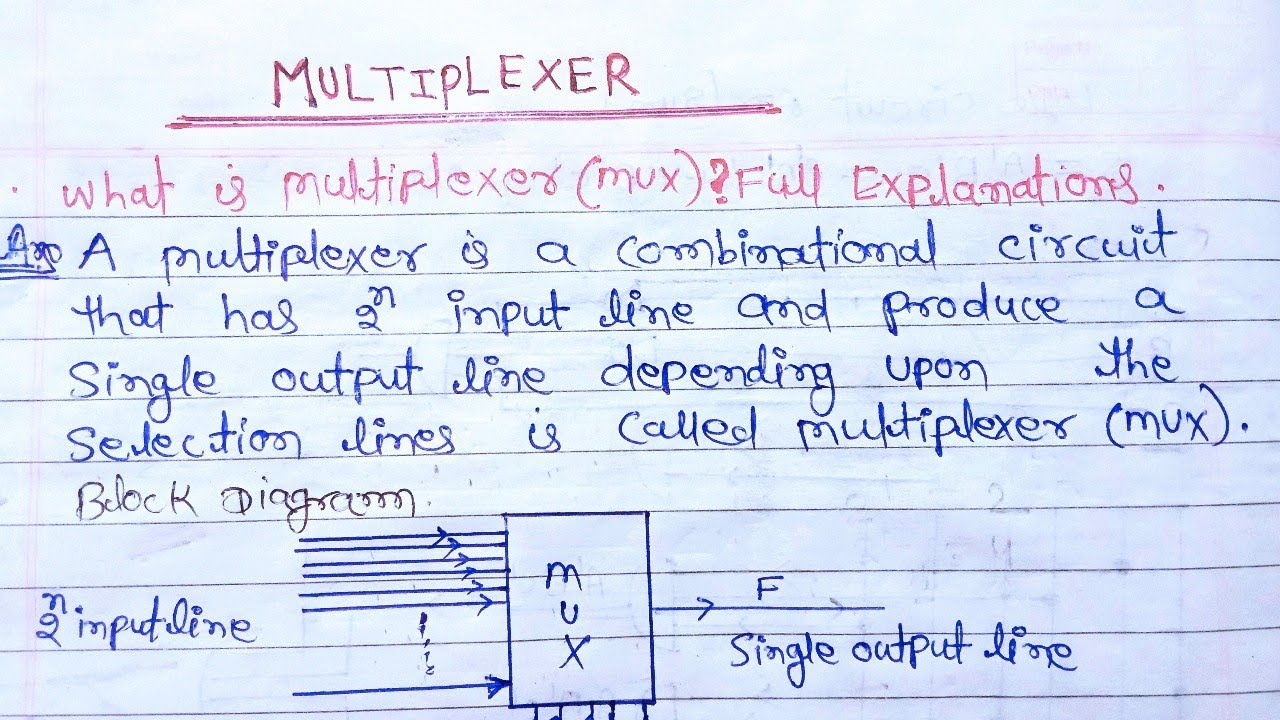 MULTIPLEXER
What is multiplexer (mux)? Full Explanations.
Ans A multiplexer is a combinational circuit
that has 2ⁿ input line and produce a
Single output line depending upon the
Selection lines is called multiplexer (mux).
Block Diagram.
2ⁿ input line
M
U
X
F
Single output line